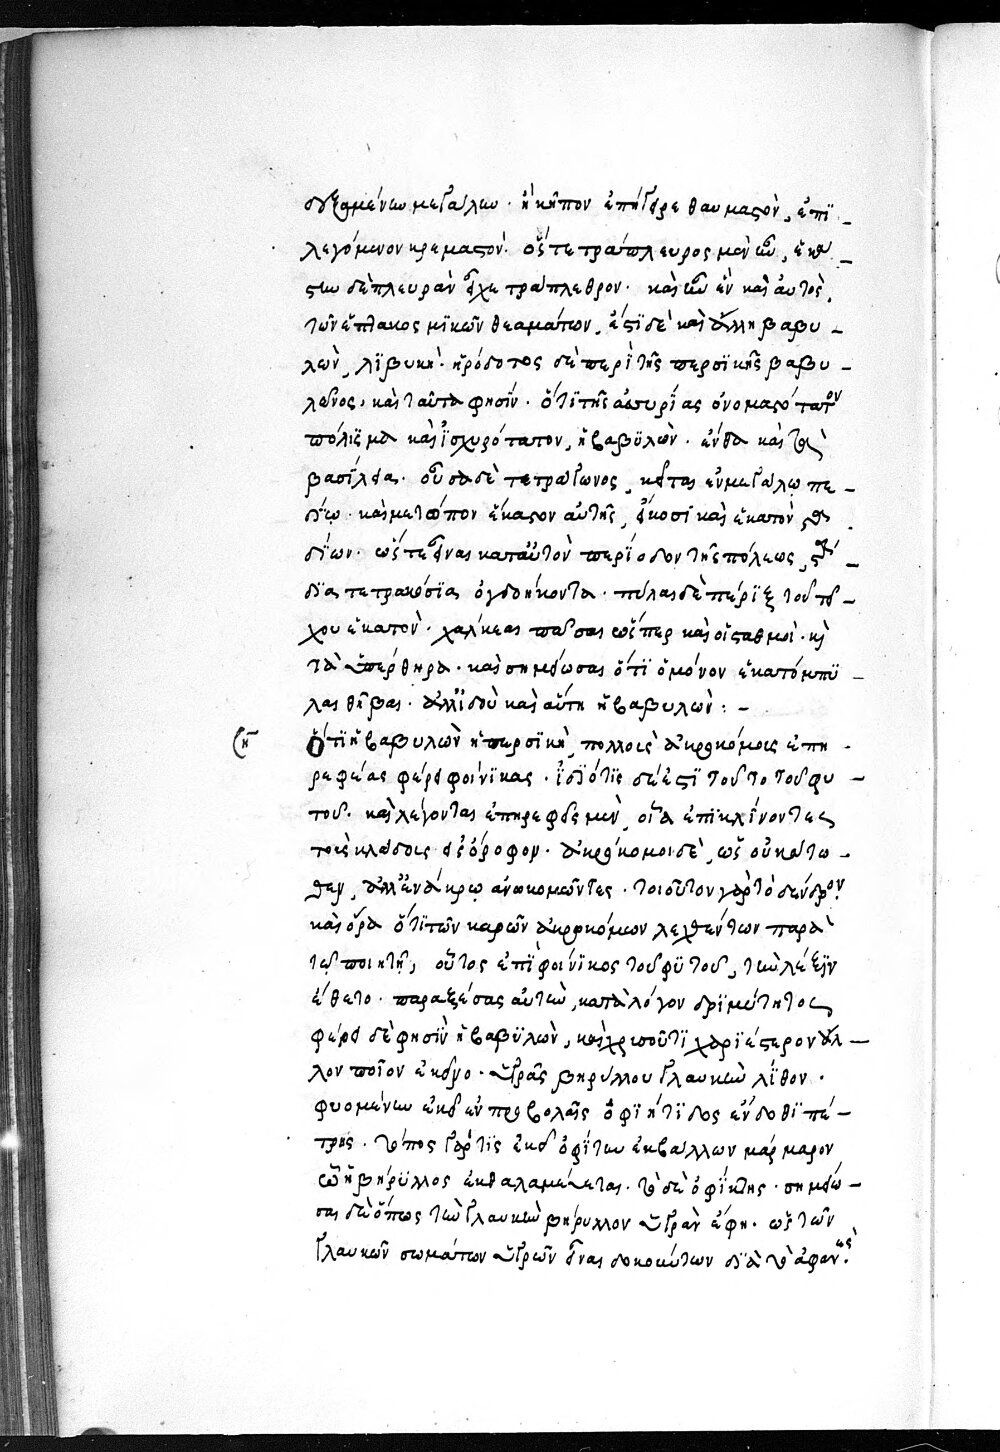 συζαμένων μεγάλων · ἢ κῆπον ἐπήγειρε θαυμαστὸν, ἐπι
λεγόμενον κρεμαστόν· ὅστε τράπλευρος μὲν ὢν, ἑκά
στην δὲ πλευρὰν εἶχε τράπλεθρον· καὶ ὢν ἓν καὶ αὐτὸς,
τῶν ἑπτακοσμικῶν θεαμάτων, ἔστι δὲ καὶ ἄλλη βαβυ
λὼν, λιβυκὴ· ἡρόδοτος δὲ περὶ τῆς περσικῆς βαβυ
λῶνος, καὶ ταῦτα φησίν· ὅτι τῆς ἀσσυρίας ὀνομαστότατον
πόλισμα καὶ ἰσχυρότατον, ἡ βαβυλών· ἔνθα καὶ τὰ
βασίλεια· οὖσα δὲ τετράγωνος, κεῖται ἐν μεγάλῳ πε
δίῳ· καὶ μέτωπον ἕκαστον αὐτῆς, εἴκοσι καὶ ἑκατὸν στα
δίων· ὥστε εἶναι κατ' αὐτὸν περίοδον τῆς πόλεως, στά
δια τετρακόσια ὀγδοήκοντα· πύλας δὲ πέριξ τοῦ τεί
χου ἑκατὸν· χαλκέας πάσας ὥσπερ καὶ οἱ σταθμοὶ· καὶ
τὰ ὑπέρθυρα· καὶ σημείωσαι ὅτι οὐ μόνον ἑκατόμπυ
λας θήβας· ἀλλ' ἰδοὺ καὶ αὕτη ἡ βαβυλὼν : –
Ὅτι ἡ βαβυλὼν ἡ περσικὴ, πολλοὺς ἀκροκόμους ἐπη
ρεφέας φέρει φοίνικας· ἰδιότης δέ ἐστι τοῦτο τοῦ φυ
τοῦ· καὶ λέγονται ἐπηρεφεῖς μὲν, οἷα ἐπικλίνοντες
τοὺς κλάδους εἰς ὄροφον· ἀκρόκομοι δὲ, ὡς οὐ κάτω
θεν, ἀλλ' ἐν ἄκρῳ ἀνακομῶντες· τοιοῦτον γὰρ τὸ δένδρον·
καὶ ὅρα ὅτι τῶν καρῶν ἀκροκόμων λεχθέντων παρὰ
τῷ ποιητῇ, οὗτος ἐπὶ φοίνικος τοῦ φυτοῦ, τὴν λέξιν
ἔθετο· παραξέσας αὐτὴν, κατὰ λόγον δριμύτητος
φέρει δὲ φησὶν ἡ βαβυλὼν, καὶ χρυσοῦ τι χαριέστερον ἄλ
λον ποῖον ἐκεῖνο· ὑγρᾶς βηρύλλου γλαυκὴν λίθον·
φυομένην ἐκεῖ ἐν προβολαῖς ὀφιήτιδος ἔνδοθι πέ
τρης· τόπος γάρ τις ἐκεῖ ὀφίτην ἐκβάλλων μάρμαρον
ᾧ ἡ βήρυλλος ἐκθαλαμεύεται· τὸ δὲ ὀφίτης· σημείω
σαι δὲ ὅπως τὴν γλαυκὴν βήρυλλον ὑγρὰν ἔφη· ὡς τῶν
γλαυκῶν σωμάτων ὑγρῶν εἶναι δοκούντων διὰ τὸ ἀφανὲς·